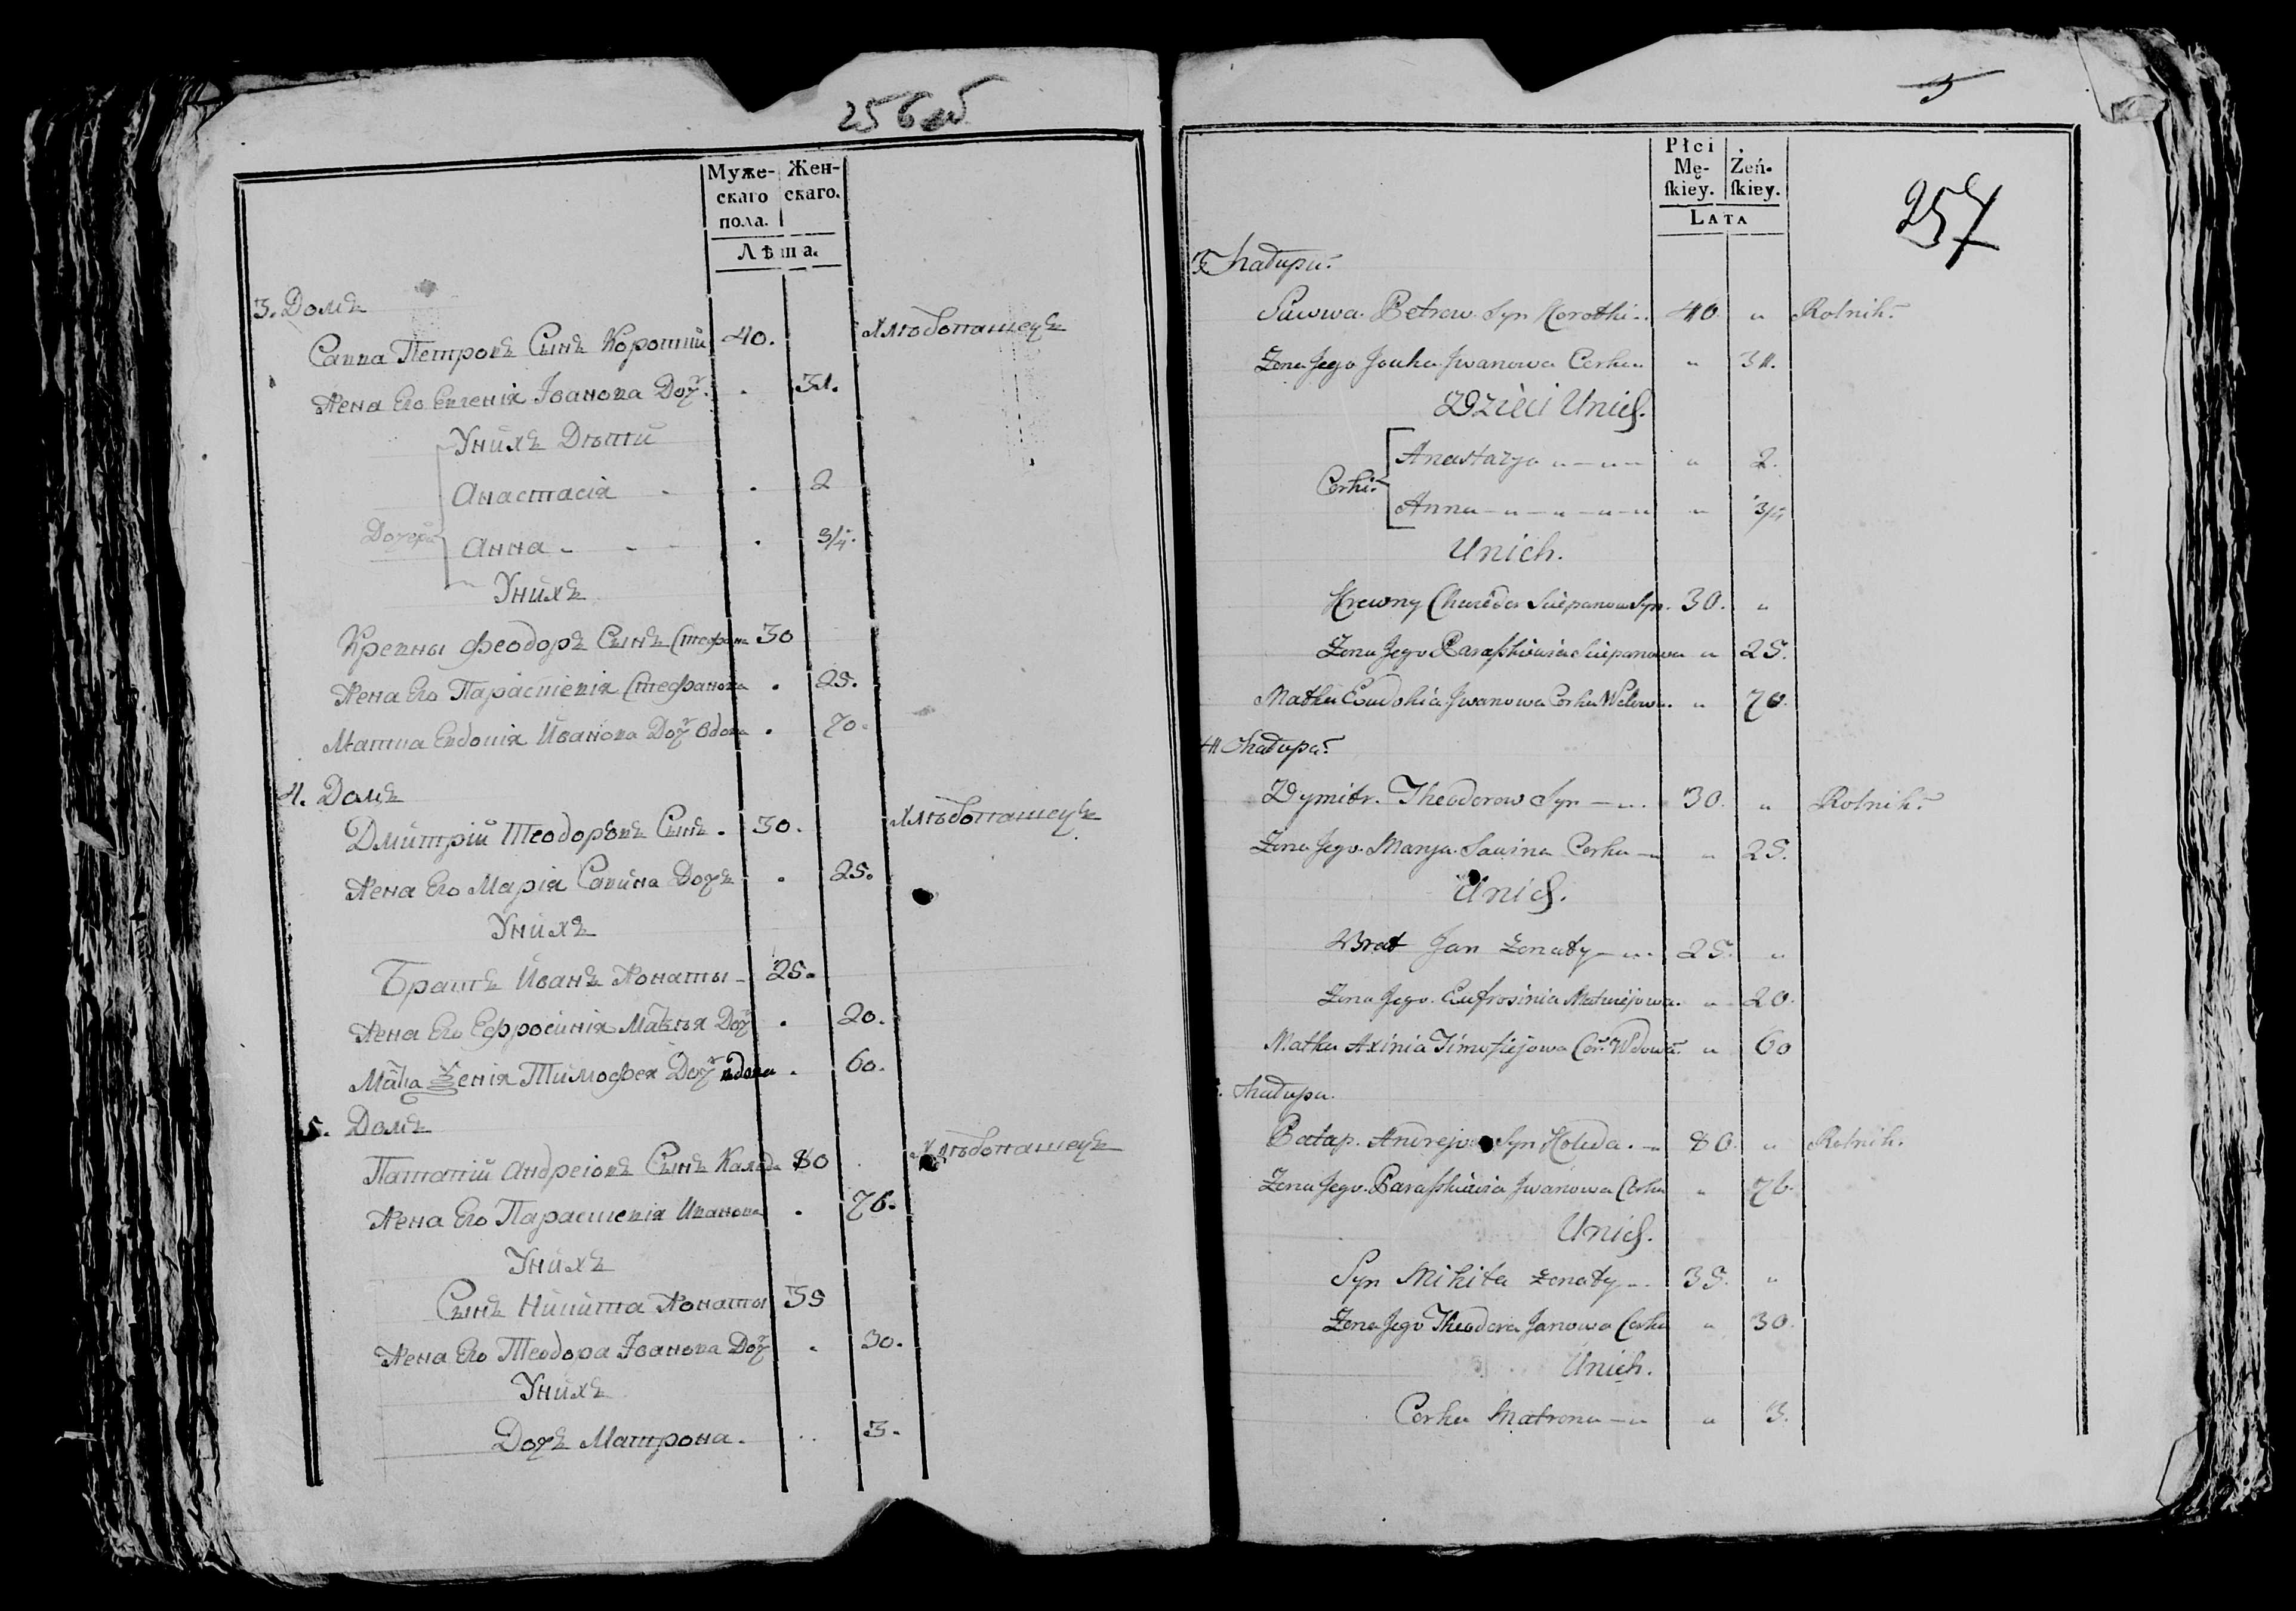 256 об
Муже-
скаго
пола.
Жен-
скаго.
Лѣта.
3. Домъ
Савва Петровъ Сынъ Короткий 40. Хлѣбопашецъ
Жена Его Евгенія Іванова Доч. 31.
Унихъ Дѣти
Анастасія 2
Дочери
Анна 3/4.
Унихъ
Кревны Феодоръ Сынъ Стефана 30
Жена Его Парасшевія Стефанова 25.
Матка Евдокія Иванова Доч Вдова 70.
4. Домъ
Дмитрій Теодоровъ Сынъ. 30. Хлѣбопашецъ
Жена Его Марія Савина Дочъ 25.
Унихъ
Братъ Иванъ Жонаты 25.
Жена Его Ефросинія Доч 20.
Тимофея Доч вдова 60.
5. Домъ
Патапий Андреіовъ Сынъ 80 Хлѣбопашецъ
Жена Его Парасшевія Иванова 76.
Унихъ
Сынъ Никита Жонаты 35
Жена Его Теодора Іванова Доч 30.
Унихъ
Дочъ Матрона. 3.
5
Płci
Mę-
ſkiey.
Żeń-
ſkiey.
Lata
257
3 Chałupa.
Sawwa Petrow Syn Korotki 40. " Rolnik.
Zona Jego Jwanowa Corka " 31.
Dzieci Unich.
Anastazya " 2.
Corki
Anna " 3/4
Unich.
Krewny Chwedor Sciepanow Syn. 30. "
Zona Jego Paraſkiewia Sciepanowa " 25.
Matka Eudokia Jwanowa Corka Wdowa " 70.
4 Chałupa.
Dymitr Theodorow Syn 30. " Rolnik.
Zona Jego Marya Sawina Corka " 25.
Unich.
Brat Jan Zonaty 25. "
Zona Jego Eufrosinia Matwiejowa " 20.
Matka Axinia Timofiejowa Cor. Wdowa " 60
Chałupa.
Patap Andrejow Syn Koleda. 80. " Rolnik.
Zona Jego Paraſkiewia Jwanowa Corka " 76.
Unich.
Syn Mikita Zonaty 35. "
Zona Jego Theodora Janowa Corka " 30.
Unich.
Corka Matrona " 3.